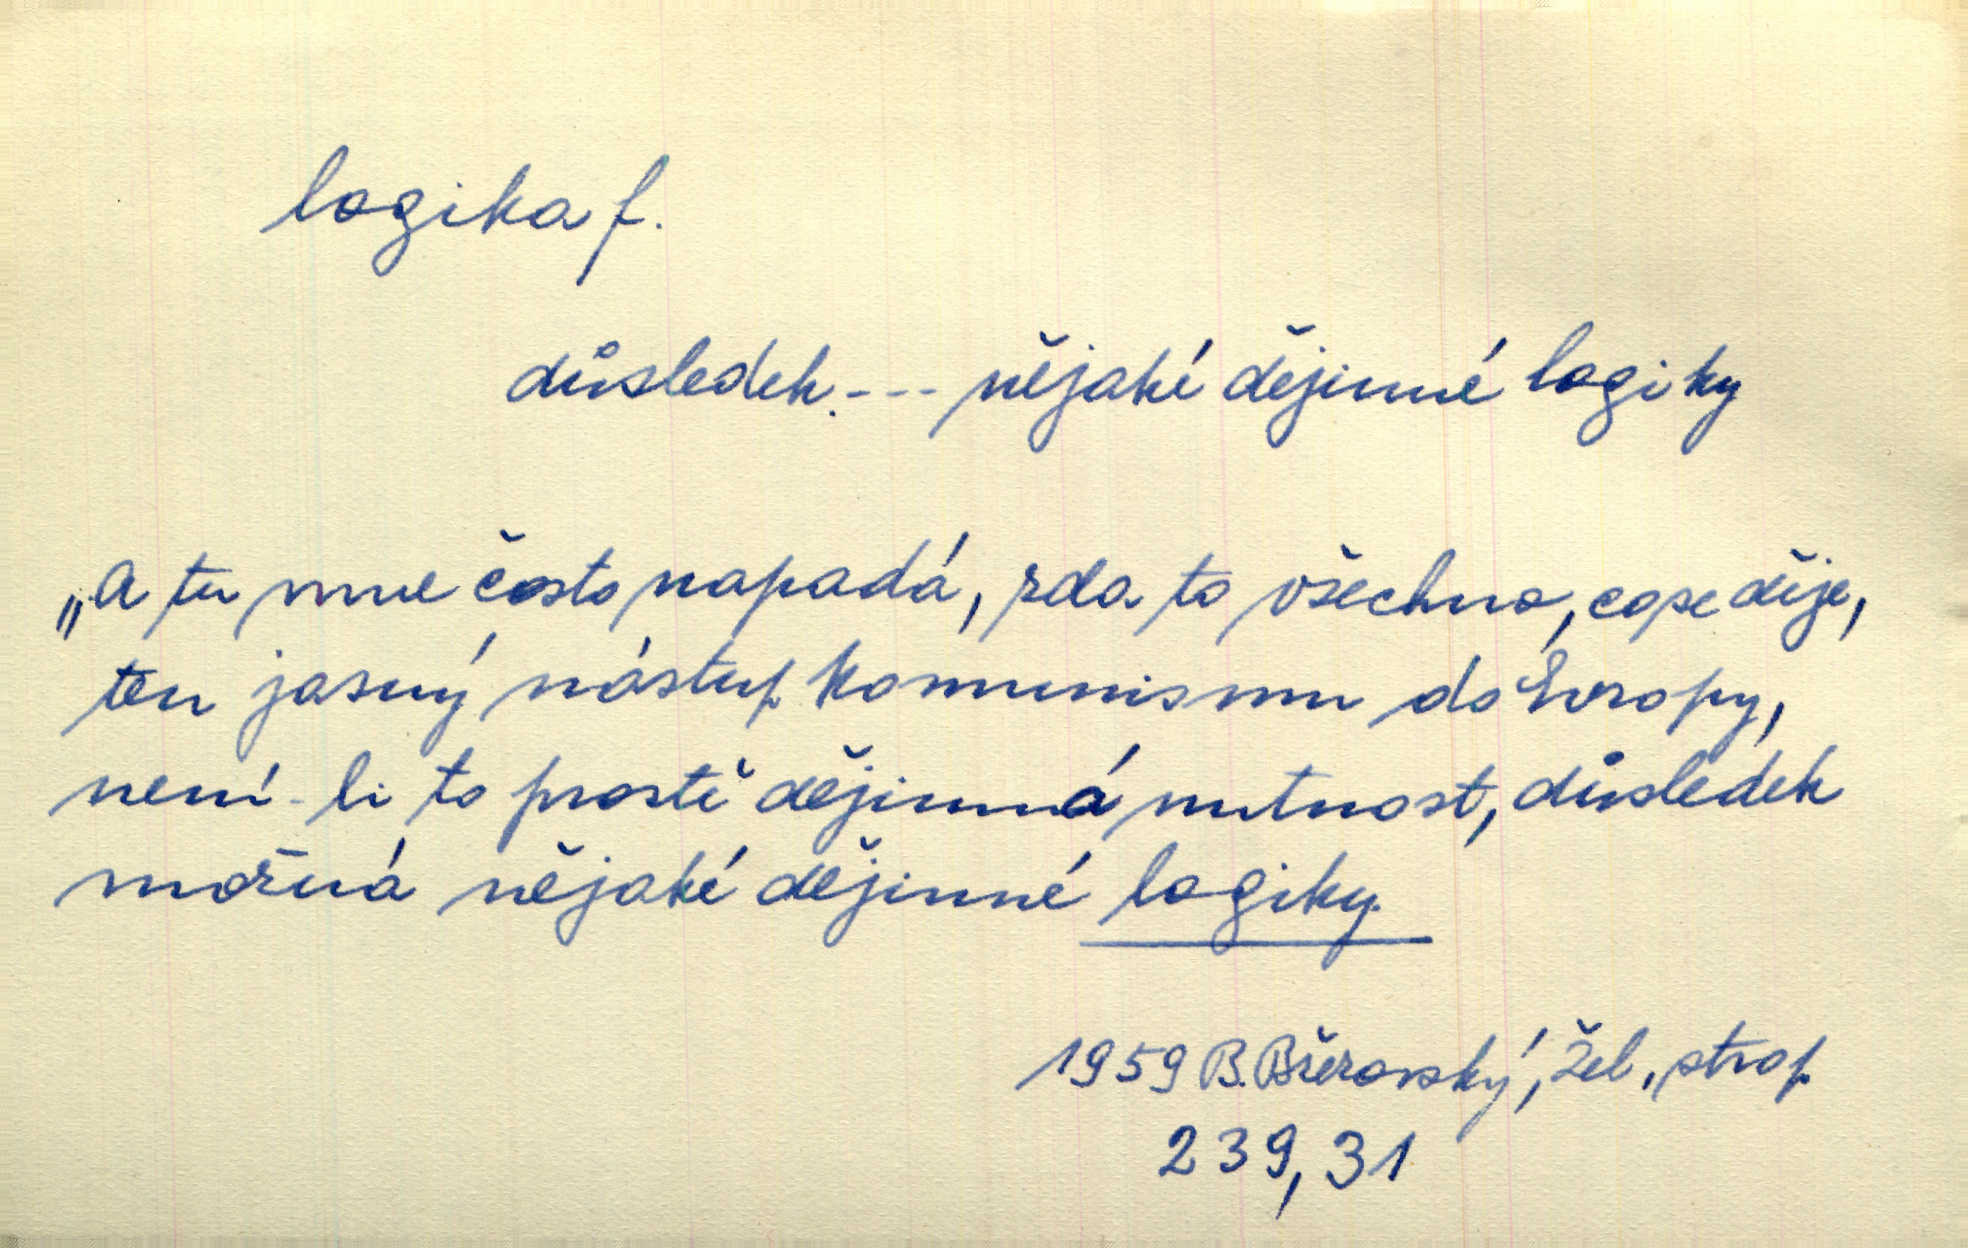 logika f.
důsledek. --- nějaké dějinné logiky
„A tu mne často napadá, zda to všechno, co se děje,
ten jasný nástup komunismu do Evropy,
není-li to prostě dějinná nutnost, důsledek
možná nějaké dějinné logiky.
1959 B. Březovský, Žel., strop
239, 31